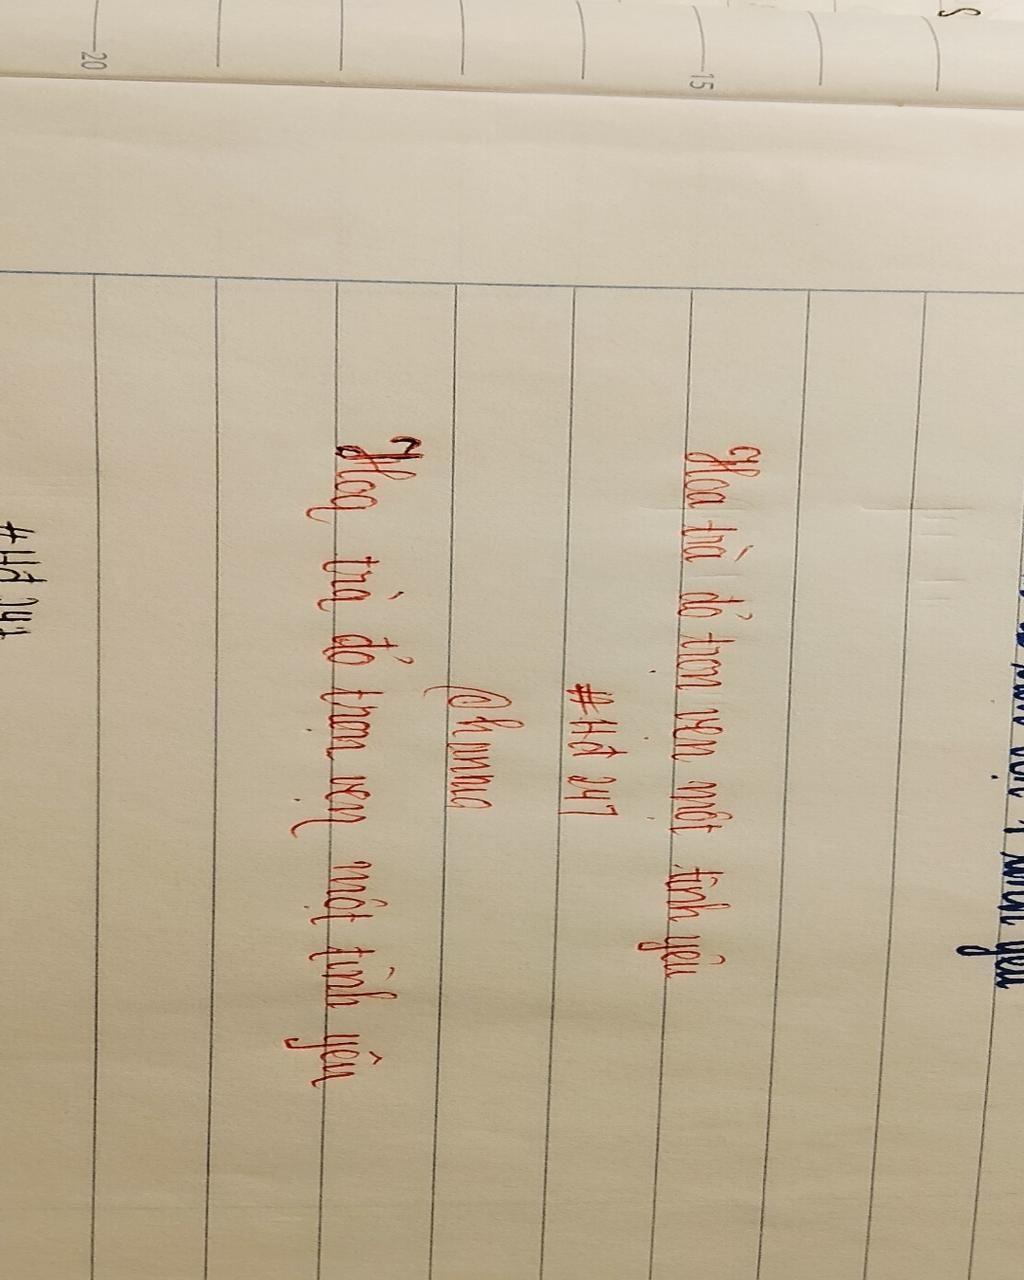 yêu
Hoa trà đỏ trọn vẹn một tình yêu
#Hđ 247
@hnnma
Hoa trà đỏ trọn vẹn một tình yêu
#Hđ 247
15
20